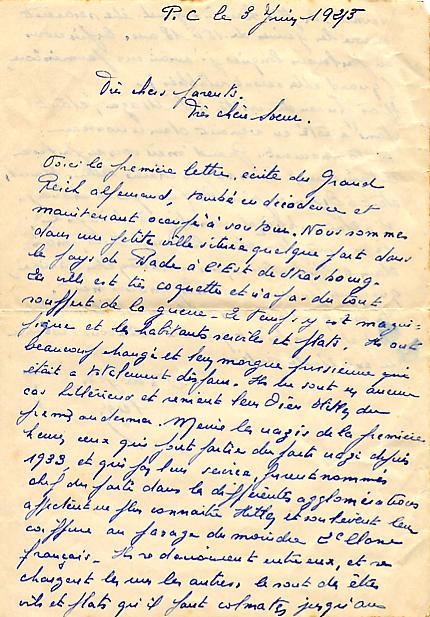 P.C le 3 Juin 1945
Très chers parents.
Très chère Soeur.
Voici la première lettre, écrite du Grand
Reich allemand, tombé en décadence et
maintenant occupé à son tour. Nous sommes
dans une petite ville située quelque part dans
le pays de Bade à l'Est de Strasbourg.
La ville est très coquette et n'a pas du tout
souffert de la guerre. Le temps y est magni-
fique et les habitants serviles et plats. Ils ont
beaucoup changé et leur morgue prussienne qui
était a totalement disparu. Ils ne sont en aucun
cas hitlériens et renient leur Dieu Hitler du
grand au dernier. Même les nazis de la première
heure, ceux qui font parties du parti nazi depuis
1933, et qui par leur service, furent nommés
chef du parti dans les différentes agglomérations
affectent ne plus connaitre Hitler et soulèvent leur
coiffure au passage du moindre 2e Classe
français. Ils se dénoncent entre eux, et se
chargent les uns les autres. Ce sont des êtres
vils et plats qu'il faut colmater jusqu'au